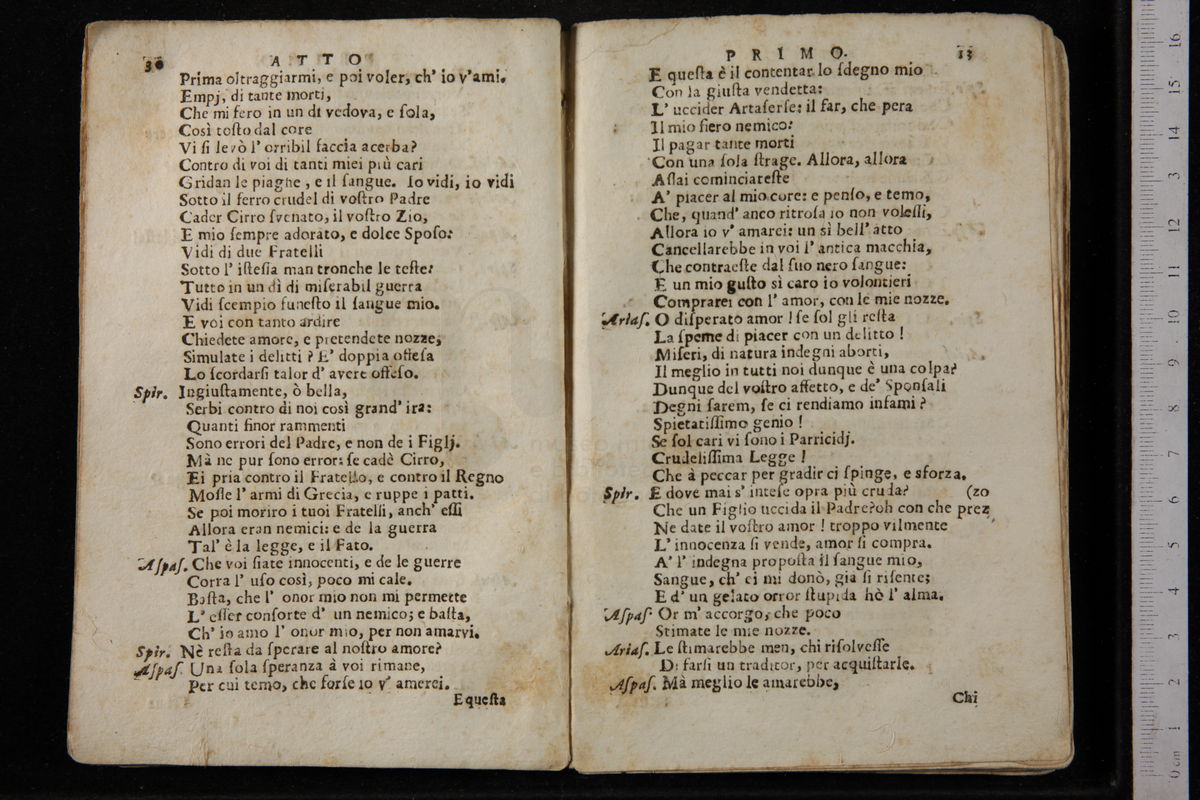 30
ATTO
Prima oltraggiarmi, e poi voler, ch' io v'ami.
Empj, di tante morti,
Che mi fero in un dì vedova, e sola,
Così tosto dal core
Vi si levò l' orribil faccia acerba?
Contro di voi di tanti miei più cari
Gridan le piaghe, e il sangue. Io vidi, io vidi
Sotto il ferro crudel di vostro Padre
Cader Cirro svenato, il vostro Zio,
E mio sempre adorato, e dolce Sposo:
Vidi di due Fratelli
Sotto l' istessa man tronche le teste:
Tutto in un dì di miserabil guerra
Vidi scempio funesto il sangue mio.
E voi con tanto ardire
Chiedete amore, e pretendete nozze,
Simulate i delitti? E' doppia offesa
Lo scordarsi talor d' avere offeso.
Spir. Ingiustamente, ò bella,
Serbi contro di noi così grand' ira:
Quanti finor rammenti
Sono errori del Padre, e non de i Figlj.
Mà ne pur sono error: se cadè Cirro,
Ei pria contro il Fratello, e contro il Regno
Mosse l' armi di Grecia, e ruppe i patti.
Se poi moriro i tuoi Fratelli, anch' essi
Allora eran nemici: e de la guerra
Tal' è la legge, e il Fato.
Aspas. Che voi siate innocenti, e de le guerre
Corra l' uso così, poco mi cale.
Basta, che l' onor mio non mi permette
L' esser consorte d' un nemico; e basta,
Ch' io amo l' onor mio, per non amarvi.
Spir. Nè resta da sperare al nostro amore?
Aspas. Una sola speranza à voi rimane,
Per cui temo, che forse io v' amerei.
E questa
PRIMO.
13
E questa è il contentar lo sdegno mio
Con la giusta vendetta:
L' uccider Artaserse: il far, che pera
Il mio fiero nemico:
Il pagar tante morti
Con una sola strage. Allora, allora
Assai cominciareste
A' piacer al mio core: e penso, e temo,
Che, quand' anco ritrosa io non volessi,
Allora io v' amarei: un sì bell' atto
Cancellarebbe in voi l' antica macchia,
Che contraeste dal suo nero sangue:
E un mio gusto sì caro io volontieri
Comprarei con l' amor, con le mie nozze.
Arias. O disperato amor! se sol gli resta
La speme di piacer con un delitto!
Miseri, di natura indegni aborti,
Il meglio in tutti noi dunque è una colpa?
Dunque del vostro affetto, e de' Sponsali
Degni sarem, se ci rendiamo infami?
Spietatissimo genio!
Se sol cari vi sono i Parricidj.
Crudelissima Legge!
Che à peccar per gradir ci spinge, e sforza.
Spir. E dove mai s' intese opra più cruda? (zo
Che un Figlio uccida il Padre? oh con che prez
Ne date il vostro amor! troppo vilmente
L' innocenza si vende, amor si compra.
A' l' indegna proposta il sangue mio,
Sangue, ch' ei mi donò, già si risente;
E d' un gelato orror stupida hò l' alma.
Aspas. Or m' accorgo, che poco
Stimate le mie nozze.
Arias. Le stimarebbe men, chi risolvesse
Di farsi un traditor, per acquistarle.
Aspas. Mà meglio le amarebbe,
Chi
0 cm 1 2 3 4 5 6 7 8 9 10 11 12 13 14 15 16